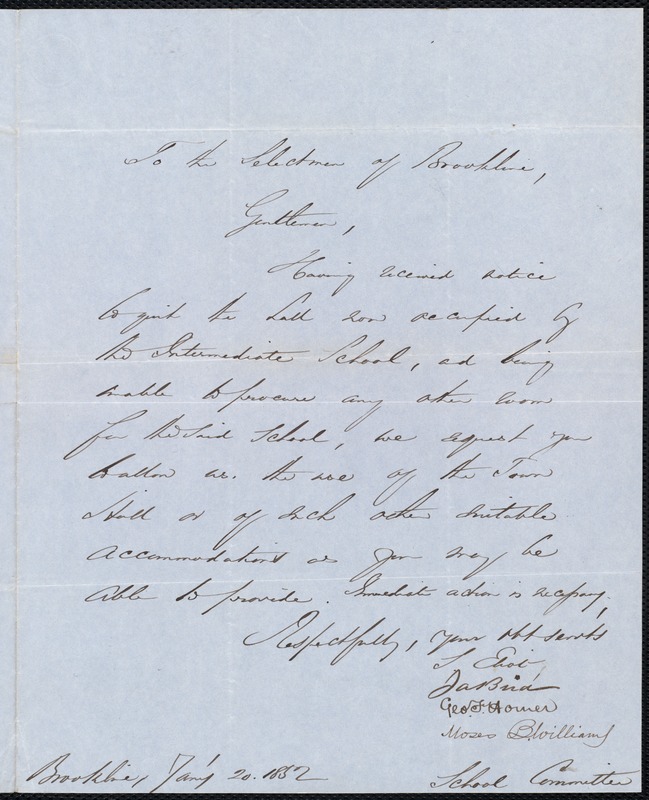 To the Selectmen of Brookline,
Gentlemen,
Having received notice
to quit the hall now occupied by
the Intermediate School, and being
unable to procure any other room
for the said School, we request you
to allow us the use of the Town
Hall or of such other suitable
accommodations as you may be
able to provide. Immediate action is necessary.
Respectfully, your obt servts
S. Eliot
Ja Bird
Geo. F. Homer
Moses B. Williams
Brookline, Jany 20. 1852
School Committee